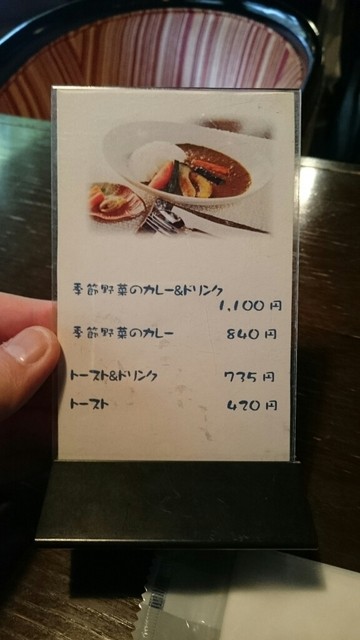 季節野菜のカレー&ドリンク
1,100円
季節野菜のカレー 840円
トースト&ドリンク 735円
トースト 420円